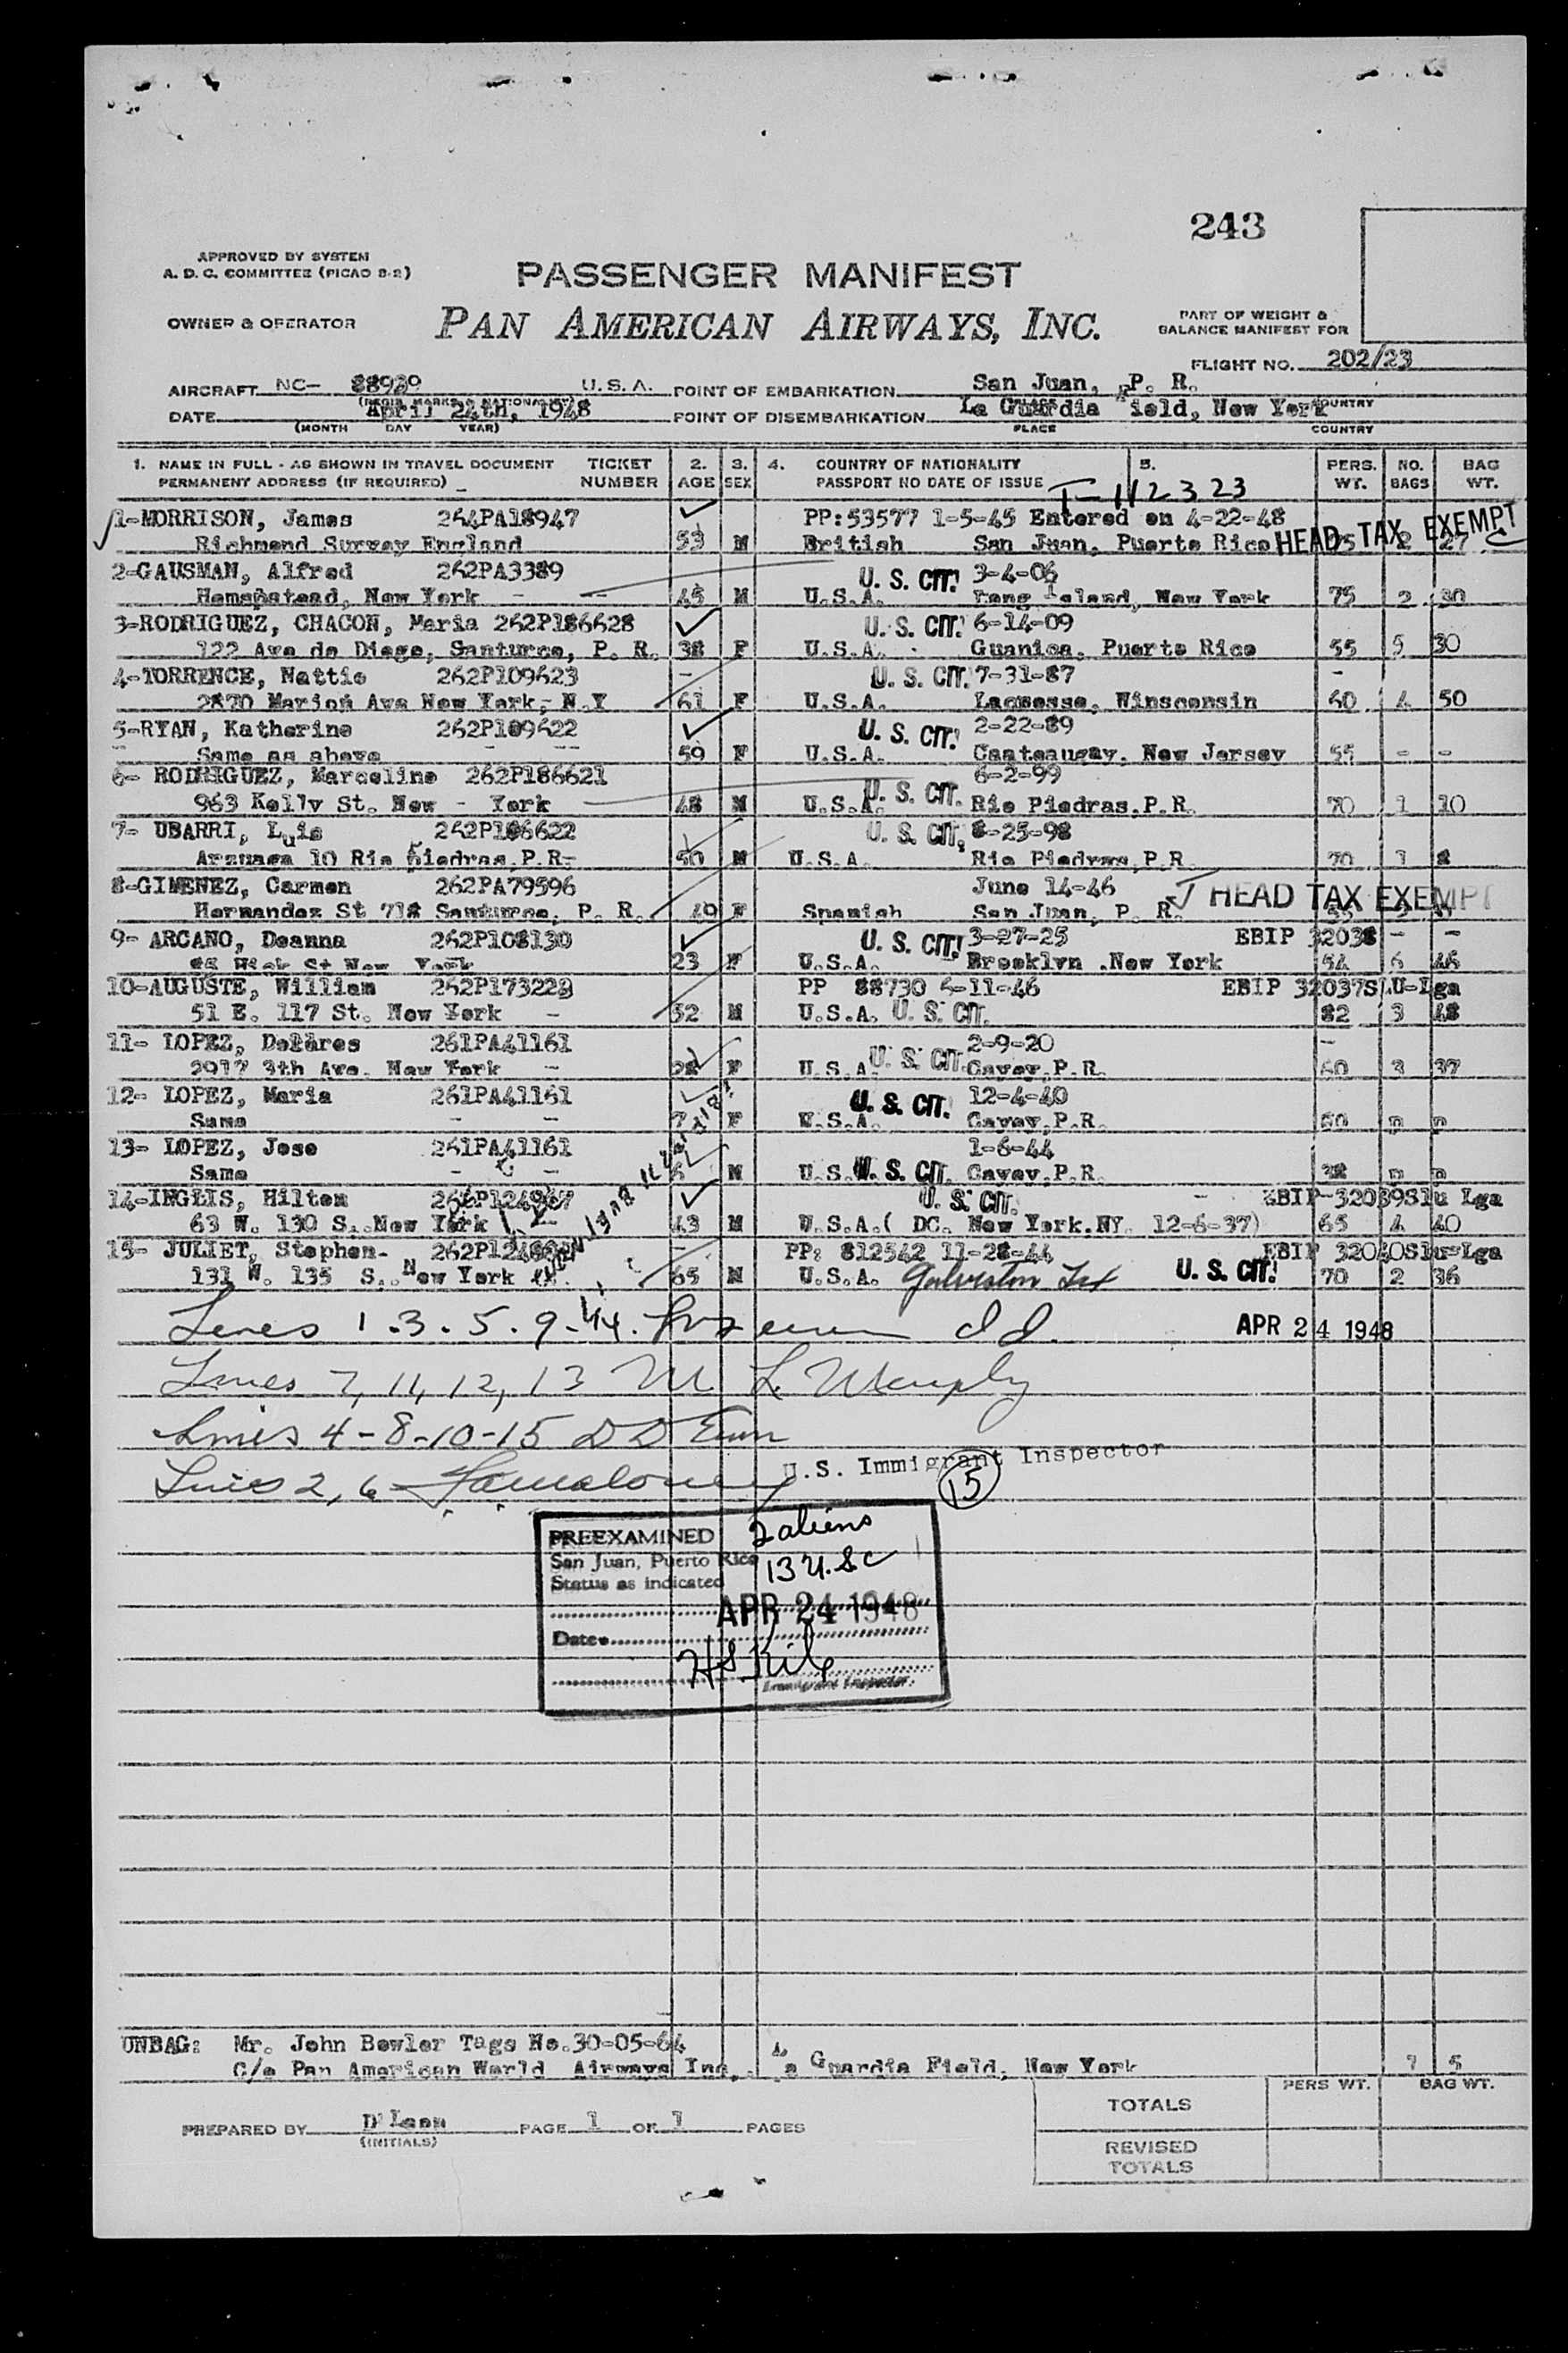 243
APPROVED BY SYSTEM
A. D. C. COMMITTEE (PICAO 8-2)
PASSENGER MANIFEST
OWNER & OPERATOR
PAN AMERICAN AIRWAYS, INC.
PART OF WEIGHT &
BALANCE MANIFEST FOR
FLIGHT NO. 202/23
AIRCRAFT NC- 88939 U. S. A. POINT OF EMBARKATION San Juan, P. R.
DATE April 24th, 1948 POINT OF DISEMBARKATION La Guardia Field, New York COUNTRY
(MONTH DAY YEAR) PLACE COUNTRY
1. NAME IN FULL - AS SHOWN IN TRAVEL DOCUMENT TICKET 2. 3. 4. COUNTRY OF NATIONALITY 5. PERS. NO. BAG
PERMANENT ADDRESS (IF REQUIRED) NUMBER AGE SEX PASSPORT NO DATE OF ISSUE T-112323 WT. BAGS WT.
1-MORRISON, James 264PA18947 PP:53577 1-5-45 Entered on 4-22-48
Richmond Survey England 53 M British San Juan, Puerto Rico HEAD TAX EXEMPT 2 27
2-GAUSMAN, Alfred 262PA3389 U. S. CIT. 3-4-06
Hempstead, New York - 45 M U.S.A. Long Island, New York 75 2 30
3-RODRIGUEZ, CHACON, Maria 262P186628 U. S. CIT. 6-14-09
122 Ave de Diego, Santurce, P. R. 38 F U.S.A. Guanica, Puerto Rico 55 5 30
4-TORRENCE, Nettie 262P109623 - U. S. CIT. 7-31-87 -
2870 Marion Ave New York, N.Y 61 F U.S.A. Lacrosse, Winsconsin 60 4 50
5-RYAN, Katherine 262P109622 U. S. CIT. 2-22-89
Same as above 59 F U.S.A. Caateaugay, New Jersey 55 - -
6- RODRIGUEZ, Marcelino 262P186621 6-2-99
963 Kelly St. New - York 48 M U.S.A. U. S. CIT. Rio Piedras.P.R. 70 1 10
7- UBARRI, Luis 262P186622 U. S. CIT. 8-25-98
Arzuaga 10 Rio Piedras.P.R- 50 M U.S.A. Rio Piedras,P.R 70 1 8
8-GIMENEZ, Carmen 262PA79596 June 14-46 HEAD TAX EXEMPT
Hernandez St 718 Santurce, P. R. 49 F Spanish San Juan, P. R.
9- ARCANO, Deanna 262P108130 U. S. CIT. 3-27-25 EBIP 32038 - -
St New York 23 F U.S.A. Brooklyn .New York 54 6 46
10-AUGUSTE, William 262P173228 PP 88730 6-11-46 EBIP 32037SLU-Lga
51 E. 117 St. New York - 52 M U.S.A. U. S. CIT. 82 3 48
11- LOPEZ, Dolores 261PA41161 2-9-20 -
2917 3th Ave. New York - 28 F U.S.A. U. S. CIT. Cayey.P.R. 60 3 37
12- LOPEZ, Maria 261PA41161 U. S. CIT. 12-4-40
Same - - 7 F U.S.A. Cayey.P.R. 50
13- LOPEZ, Jose 261PA41161 1-6-44
Same - - M U.S. U. S. CIT. Cayey.P.R. 38
14-INGLIS, Hilton U. S. CIT. - EBIP-32039Slu Lga
63 W. 130 S..New York 43 M U.S.A.( DC. New York.NY. 12-6-37) 65 4 40
15- JULIET, Stephen- - PP: 812542 11-28-44 EBIP 32040Slu-Lga
131 W. 135 S..New York 65 M U.S.A. Galveston Tex U. S. CIT. 70 2 36
Lines 1.3.5.9.14. APR 24 1948
Lines 7, 11, 12, 13 M L Murphy
Lines 4-8-10-15 D D
Lines 2, 6
U.S. Immigrant Inspector
15
PREEXAMINED 2 aliens
San Juan, Puerto Rico 13 U.S.C
Status as indicated
APR 24 1948
Date
Immigrant Inspector
UNBAG: Mr. John Bowler Tags No.30-05-64
C/o Pan American World Airways Inc, La Guardia Field, New York 5
PERS WT. BAG WT.
TOTALS
PREPARED BY D'Leon PAGE 1 OF 1 PAGES
(INITIALS)
REVISED
TOTALS